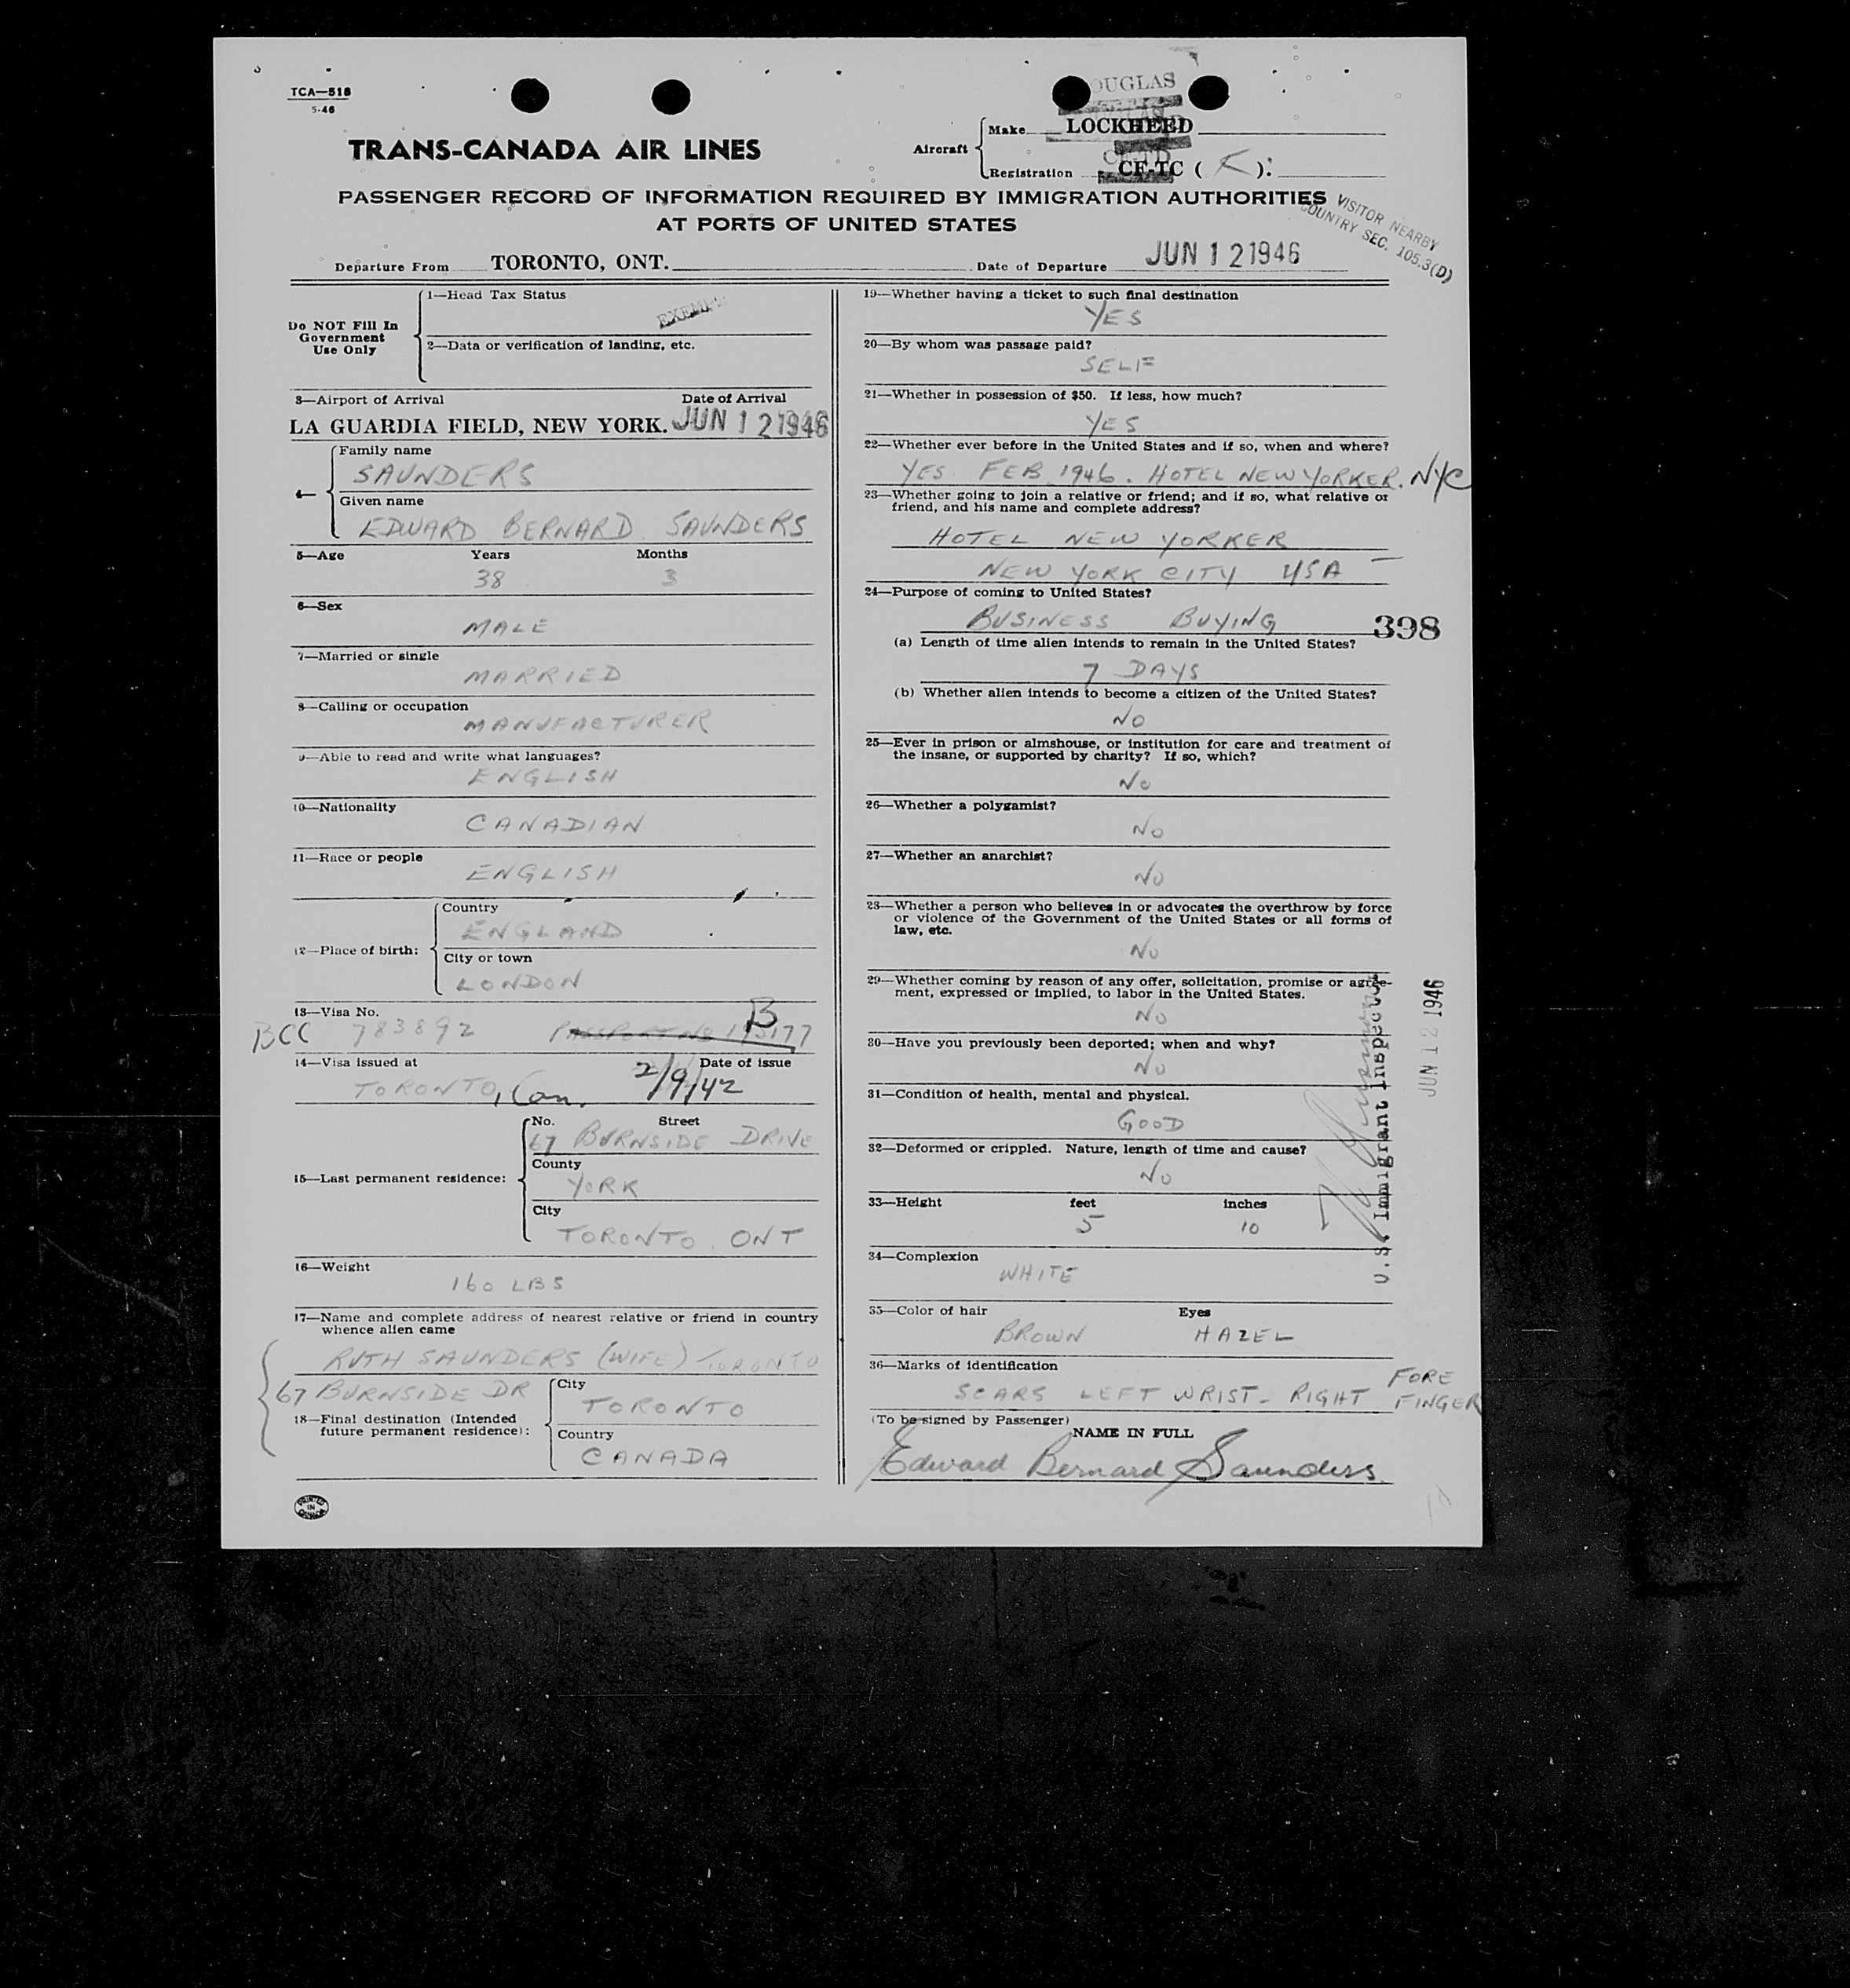 TCA—518
5-46
TRANS-CANADA AIR LINES
DOUGLAS
Aircraft
Make LOCKHEED
Registration CF-TC ( K ):
PASSENGER RECORD OF INFORMATION REQUIRED BY IMMIGRATION AUTHORITIES
AT PORTS OF UNITED STATES
VISITOR NEARBY
COUNTRY SEC. 105.3(D)
Departure From TORONTO, ONT. Date of Departure JUN 12 1946
Do NOT Fill In
Government
Use Only
1—Head Tax Status
EXEMPT
2—Data or verification of landing, etc.
3—Airport of Arrival Date of Arrival
LA GUARDIA FIELD, NEW YORK. JUN 12 1946
4— Family name
SAUNDERS
Given name
EDWARD BERNARD SAUNDERS
5—Age Years Months
38 3
6—Sex
MALE
7—Married or single
MARRIED
8—Calling or occupation
MANUFACTURER
9—Able to read and write what languages?
ENGLISH
10—Nationality
CANADIAN
11—Race or people
ENGLISH
12—Place of birth:
Country
ENGLAND
City or town
LONDON
13—Visa No.
BCC 783892 PASSPORT NO 193177 B
14—Visa issued at Date of issue
TORONTO, Can. 2/9/42
15—Last permanent residence:
No. Street
67 BURNSIDE DRIVE
County
YORK
City
TORONTO. ONT
16—Weight
160 LBS
17—Name and complete address of nearest relative or friend in country
whence alien came
RUTH SAUNDERS (WIFE) TORONTO
67 BURNSIDE DR
18—Final destination (Intended
future permanent residence):
City
TORONTO
Country
CANADA
PRINTED
IN
CANADA
19—Whether having a ticket to such final destination
YES
20—By whom was passage paid?
SELF
21—Whether in possession of $50. If less, how much?
YES
22—Whether ever before in the United States and if so, when and where?
YES FEB 1946. HOTEL NEW YORKER. NYC
23—Whether going to join a relative or friend; and if so, what relative or
friend, and his name and complete address?
HOTEL NEW YORKER
NEW YORK CITY USA
24—Purpose of coming to United States?
BUSINESS BUYING
398
(a) Length of time alien intends to remain in the United States?
7 DAYS
(b) Whether alien intends to become a citizen of the United States?
NO
25—Ever in prison or almshouse, or institution for care and treatment of
the insane, or supported by charity? If so, which?
NO
26—Whether a polygamist?
NO
27—Whether an anarchist?
NO
28—Whether a person who believes in or advocates the overthrow by force
or violence of the Government of the United States or all forms of
law, etc.
NO
29—Whether coming by reason of any offer, solicitation, promise or agree-
ment, expressed or implied, to labor in the United States.
NO
30—Have you previously been deported; when and why?
NO
31—Condition of health, mental and physical.
GOOD
32—Deformed or crippled. Nature, length of time and cause?
NO
33—Height feet inches
5 10
34—Complexion
WHITE
35—Color of hair Eyes
BROWN HAZEL
36—Marks of identification
SCARS LEFT WRIST - RIGHT FORE FINGER
(To be signed by Passenger)
NAME IN FULL
Edward Bernard Saunders
U. S. Immigrant Inspector
JUN 12 1946